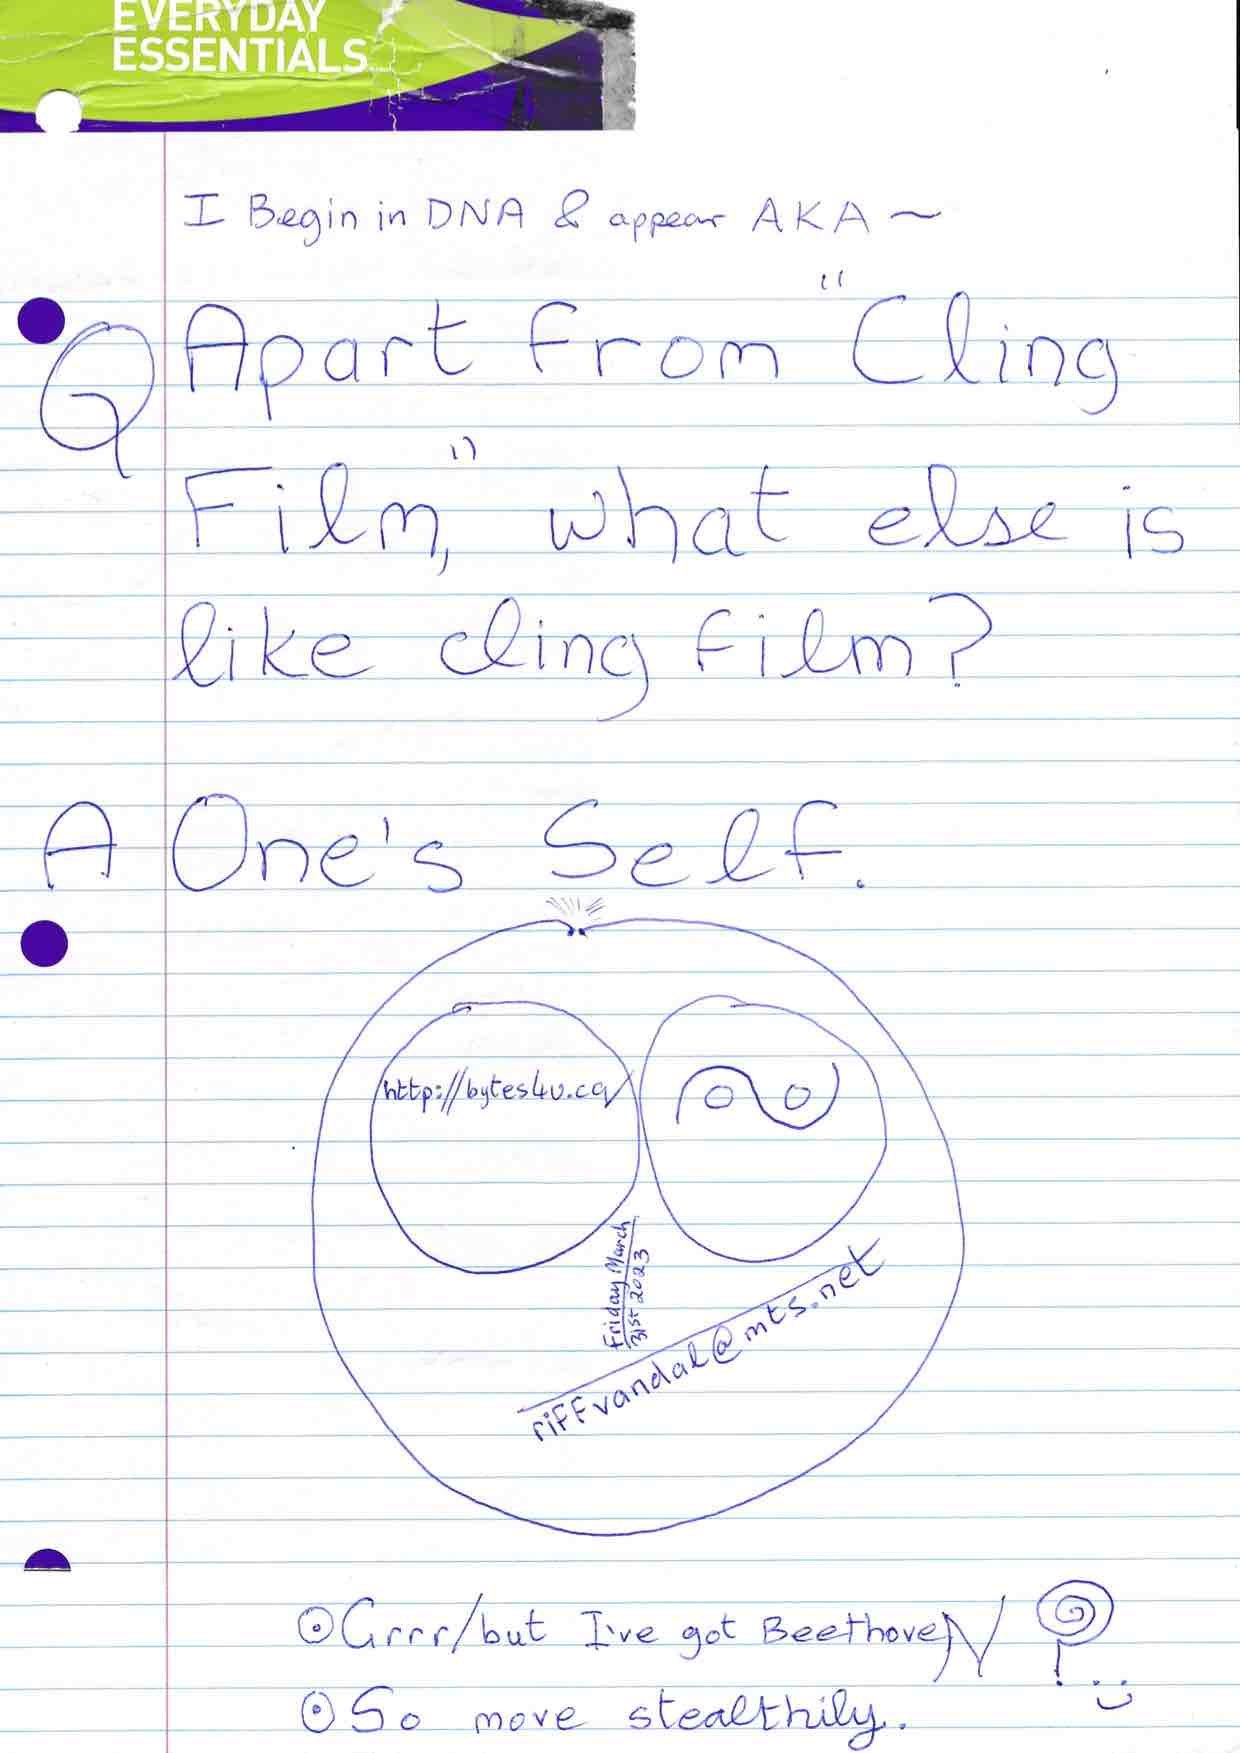 EVERYDAY
ESSENTIALS
I Begin in DNA & appear AKA ~
Q Apart from "Cling
Film," what else is
like cling film?
A One's Self.
http://bytes4u.ca/
Friday March
31st 2023
riffvandal@mts.net
Grrr/but I've got BeethoveN
So move stealthily.